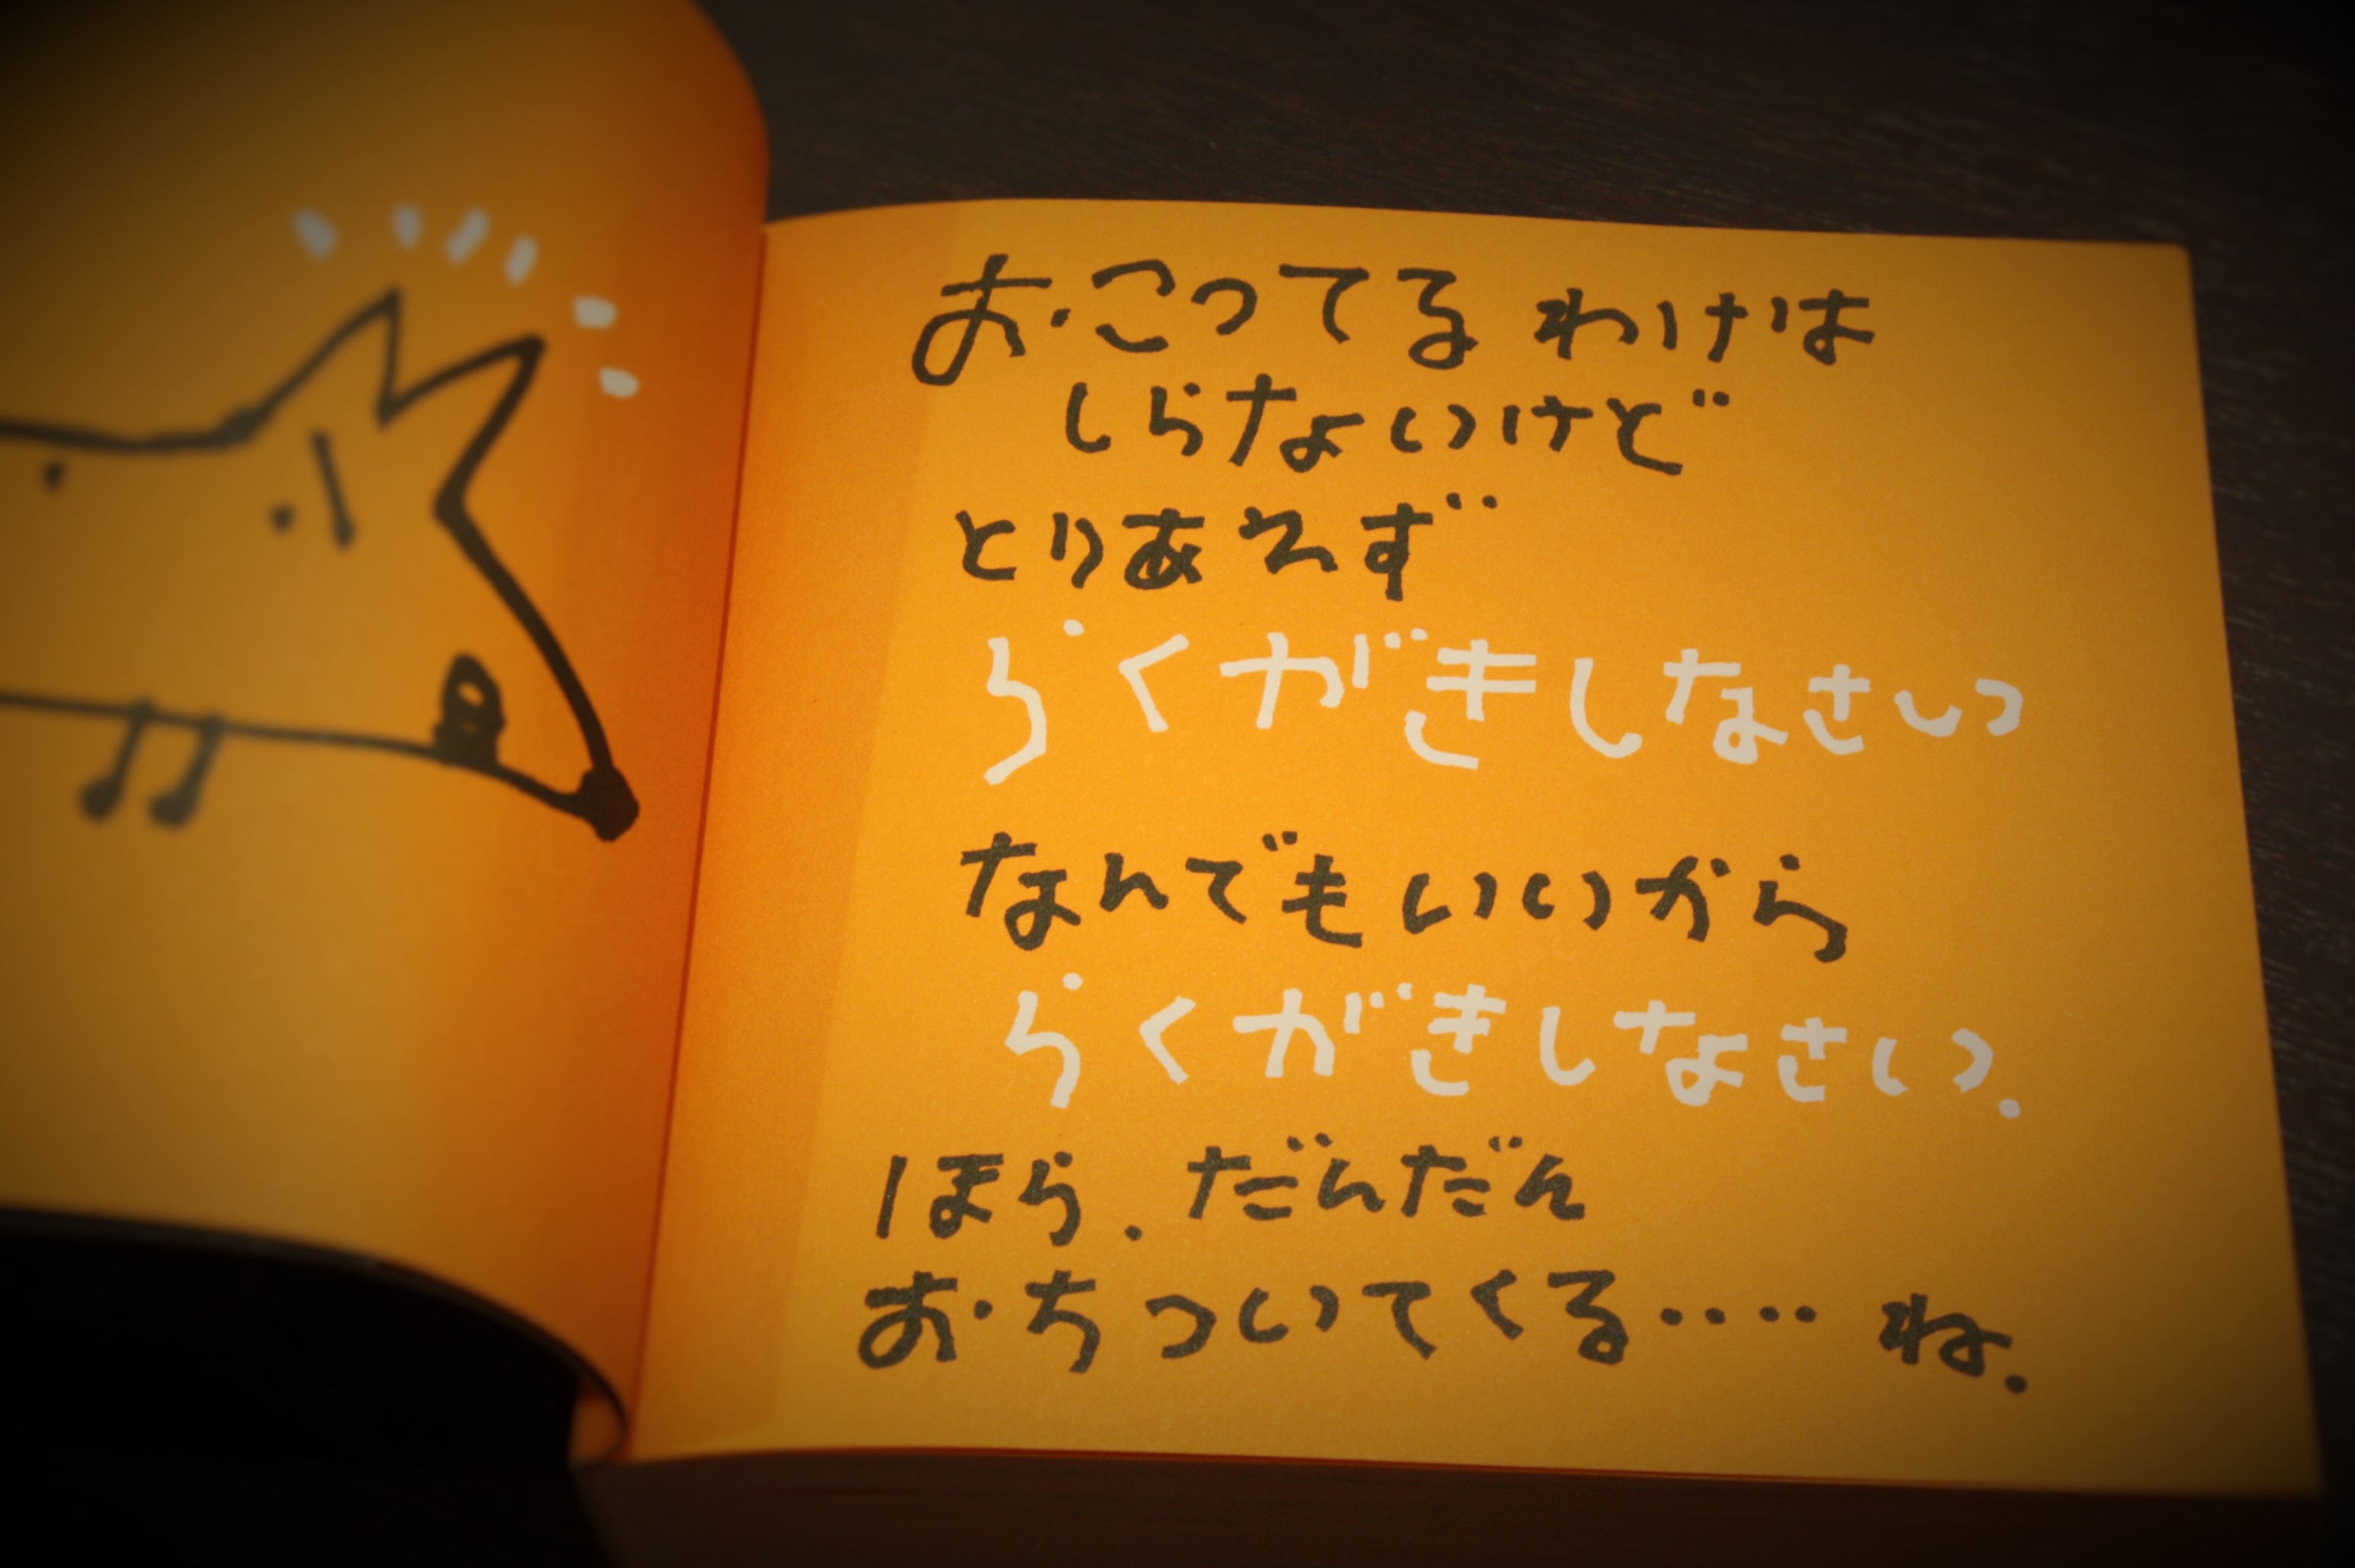 おこってる わけは
しらないけど
とりあえず
らくがきしなさい
なんでもいいから
らくがきしなさい.
ほら.だんだん
おちついてくる‥‥ ね.